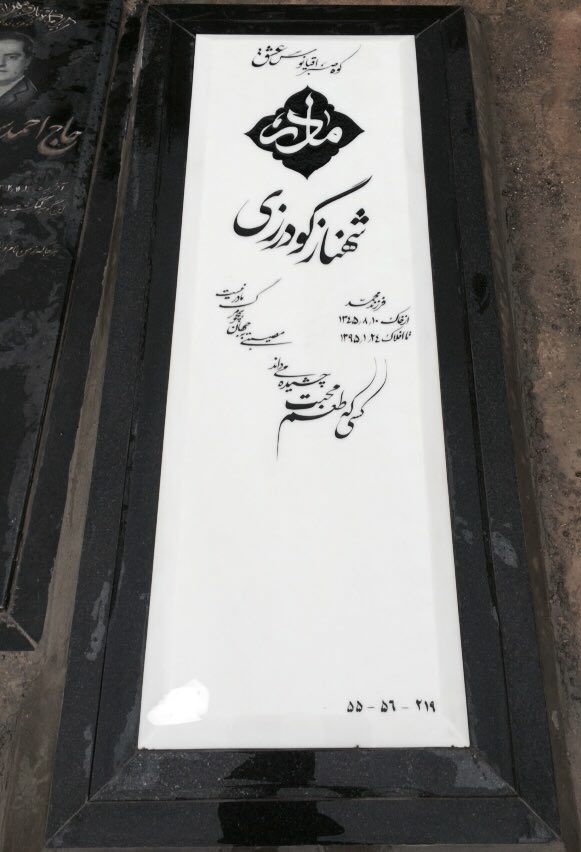 کوه صبر اقیانوس عشق
مادر
شهناز گودرزی
فرزند محمد
از خاک ۱۳۴۵/۸/۱۰
تا افلاک ۱۳۹۵/۱/۲۴
مصیبتی به جهان
بچو
مرگ مادر نیست
کسی که طعم محبت
چشیده می‌داند
۲۱۹ - ۵۶ - ۵۵
حاج احمد